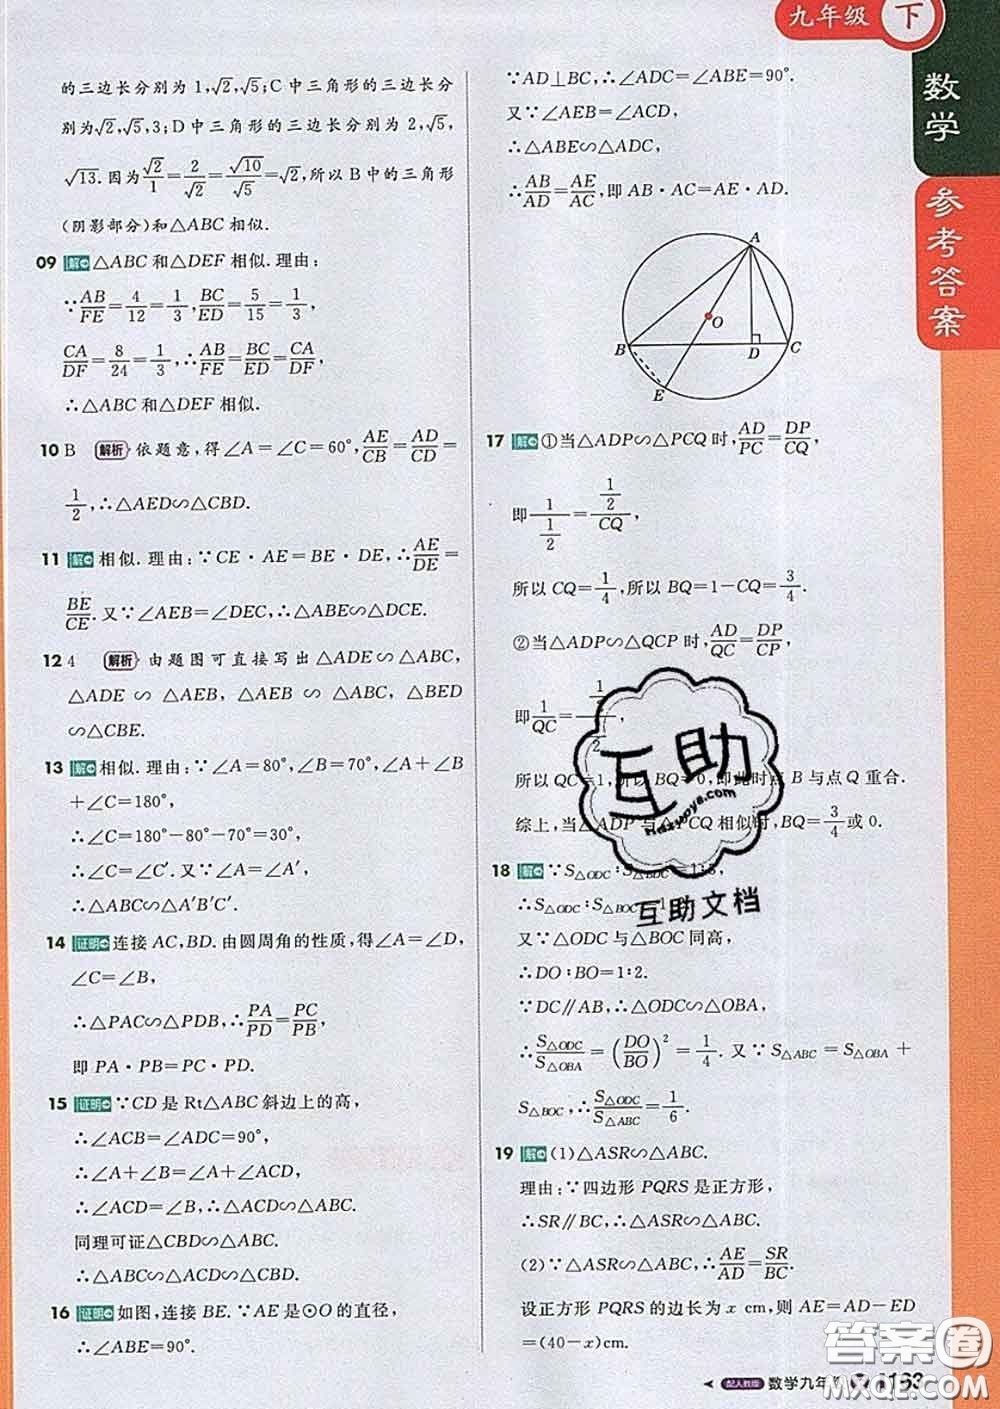 九年级 下
数学
参考答案
的三边长分别为 1,√2,√5;C中三角形的三边长分
别为√2,√5,3;D中三角形的三边长分别为 2,√5,
√13.因为√2/1=2/√2=√10/√5=√2,所以 B中的三角形
(阴影部分)和△ABC相似.
09 解 △ABC和△DEF相似.理由:
∵AB/FE=4/12=1/3,BC/ED=5/15=1/3,
CA/DF=8/24=1/3,∴AB/FE=BC/ED=CA/DF,
∴△ABC和△DEF相似.
10 B 解析 依题意,得∠A=∠C=60°,AE/CB=AD/CD=
1/2,∴△AED∽△CBD.
11 解 相似.理由:∵CE·AE=BE·DE,∴AE/DE=
BE/CE.又∵∠AEB=∠DEC,∴△ABE∽△DCE.
12 4 解析 由题图可直接写出△ADE∽△ABC,
△ADE∽△AEB,△AEB∽△ABC,△BED
∽△CBE.
13 解 相似.理由:∵∠A=80°,∠B=70°,∠A+∠B
+∠C=180°,
∴∠C=180°-80°-70°=30°,
∴∠C=∠C′.又∵∠A=∠A′,
∴△ABC∽△A′B′C′.
14 证明 连接 AC,BD.由圆周角的性质,得∠A=∠D,
∠C=∠B,
∴△PAC∽△PDB,∴PA/PD=PC/PB,
即 PA·PB=PC·PD.
15 证明 ∵CD是 Rt△ABC斜边上的高,
∴∠ACB=∠ADC=90°,
∴∠A+∠B=∠A+∠ACD,
∴∠ACD=∠B,∴△ACD∽△ABC.
同理可证△CBD∽△ABC.
∴△ABC∽△ACD∽△CBD.
16 证明 如图,连接 BE.∵AE是⊙O的直径,
∴∠ABE=90°.
∵AD⊥BC,∴∠ADC=∠ABE=90°.
又∵∠AEB=∠ACD,
∴△ABE∽△ADC,
∴AB/AD=AE/AC,即 AB·AC=AE·AD.
A
O
B
D
C
E
17 解 ①当△ADP∽△PCQ时,AD/PC=DP/CQ,
即1/(1/2)=(1/2)/CQ,
所以 CQ=1/4,所以 BQ=1-CQ=3/4.
②当△ADP∽△QCP时,AD/QC=DP/CP,
即1/QC=(1/2)/(1/2),
所以 QC=1,所以 BQ=0,即此时点 B与点 Q重合.
综上,当△ADP与△PCQ相似时,BQ=3/4或 0.
18 解 ∵S△ODC:S
∴S△ODC:S△BOC=1
又∵△ODC与△BOC同高,
∴DO:BO=1:2.
∵DC∥AB,∴△ODC∽△OBA,
∴S△ODC/S△OBA=(DO/BO)²=1/4.又∵S△ABC=S△OBA+
S△BOC,∴S△ODC/S△ABC=1/6.
19 解 (1)△ASR∽△ABC.
理由:∵四边形 PQRS是正方形,
∴SR∥BC,∴△ASR∽△ABC.
(2)∵△ASR∽△ABC,∴AE/AD=SR/BC.
设正方形 PQRS的边长为 x cm,则 AE=AD-ED
=(40-x)cm.
互助
Hazuoye.com
互助文档
配人教版 数学九年
答案圈
MXQE.COM